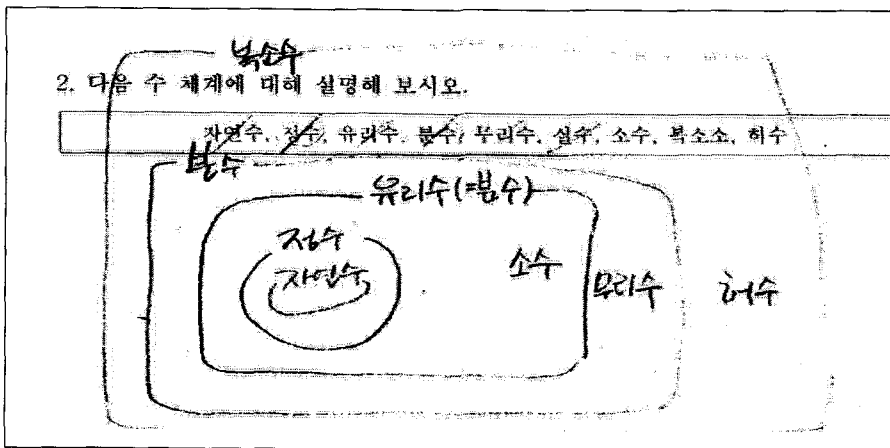 복소수
2. 다음 수 체계에 대해 설명해 보시오.
자연수, 정수, 유리수, 분수, 무리수, 실수, 소수, 복소소, 허수
유리수(=분수)
정수
자연수
소수
무리수
허수